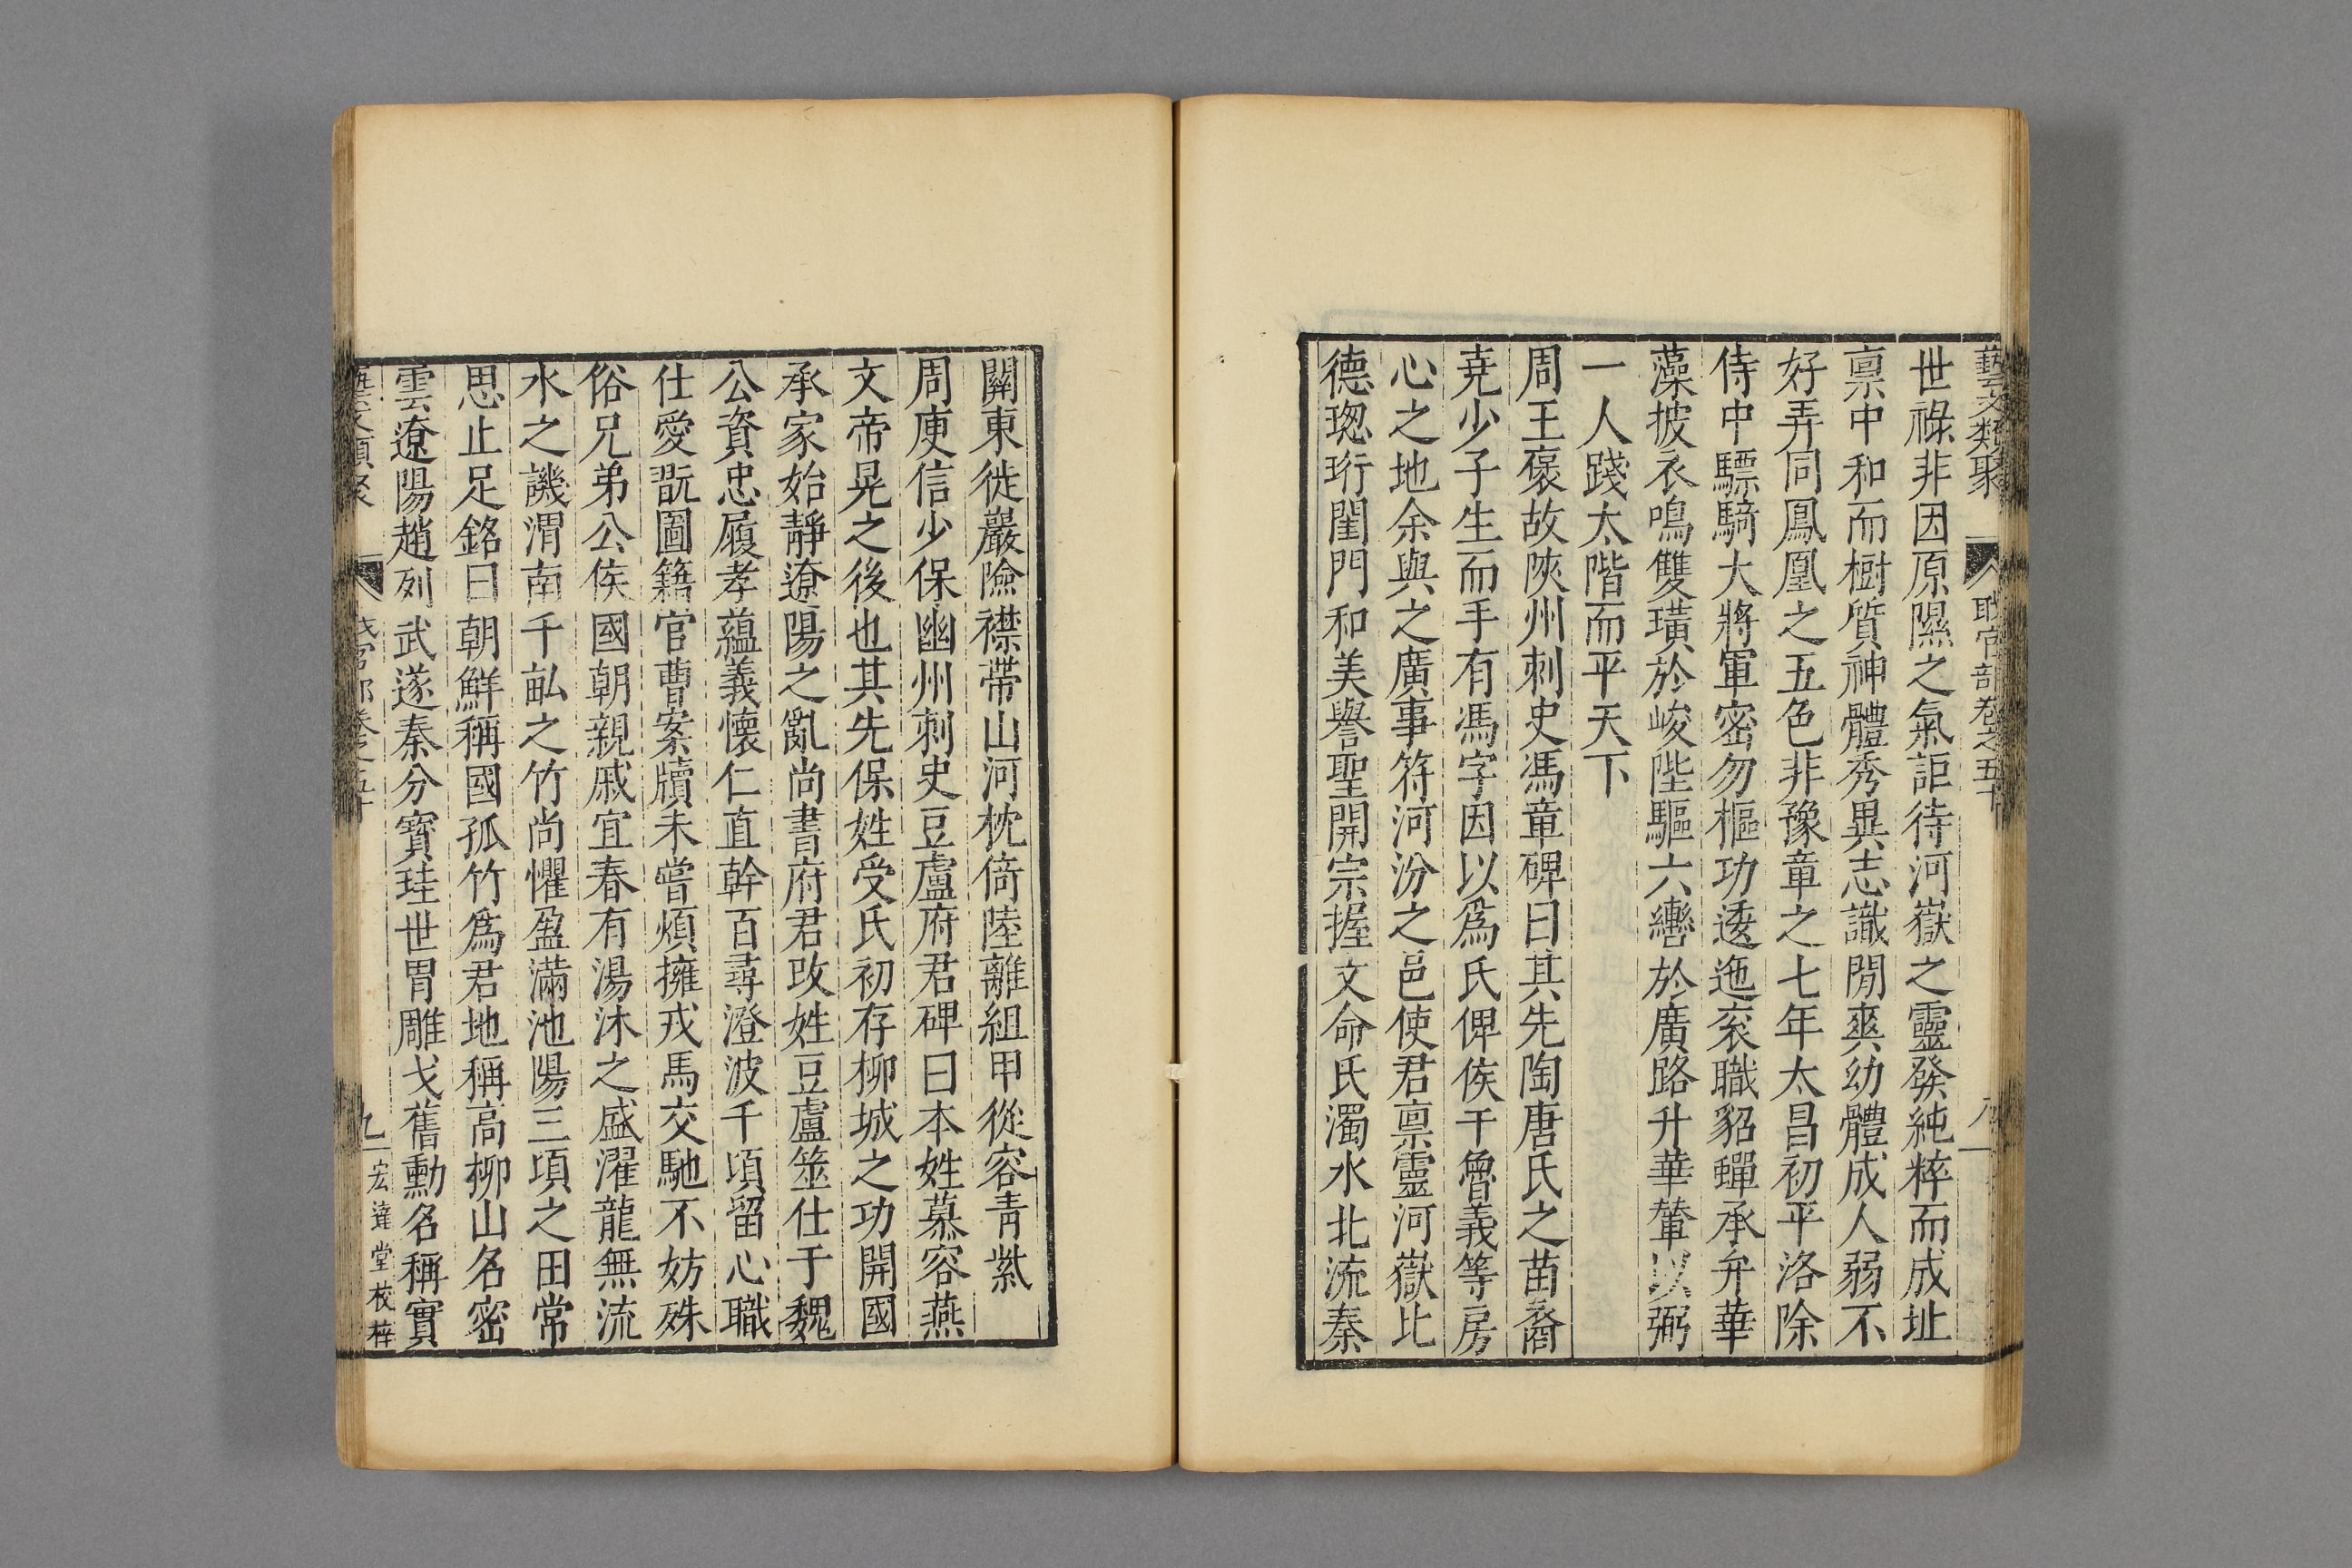 藝文類聚 職官部卷之五十 八
世祿非因原隰之氣詎待河嶽之靈發純粹而成址
禀中和而樹質神體秀異志識閒爽幼體成人弱不
好弄同鳳凰之五色非豫章之七年太昌初平洛除
侍中驃騎大將軍密勿樞功逶迤衮職貂蟬承弁華
藻披衣鳴雙璜於峻陛驅六轡於廣路升華輦以弼
一人踐太階而平天下
周王襃故陝州刺史馮章碑曰其先陶唐氏之苗裔
堯少子生而手有馮字因以爲氏俾侯于魯義等房
心之地余與之廣事符河汾之邑使君禀靈河嶽比
德璁珩閨門和美譽聖開宗握文命氏濁水北流秦
關東徙巖險襟帶山河枕倚陸離組甲從容靑紫
周庾信少保豳州刺史豆盧府君碑曰本姓慕容燕
文帝晃之後也其先保姓受氏初存柳城之功開國
承家始靜遼陽之亂尚書府君改姓豆盧筮仕于魏
公資忠履孝蘊義懷仁直幹百尋澄波千頃留心職
仕愛翫圖籍官曹案牘未嘗煩擁戎馬交馳不妨殊
俗兄弟公侯國朝親戚宜春有湯沐之盛濯龍無流
水之譏渭南千畆之竹尚懼盈滿池陽三頃之田常
思止足銘曰朝鮮稱國孤竹爲君地稱高柳山名密
雲遼陽趙列武遂秦分寳珪世胄雕戈舊勳名稱實
藝文類聚 職官部卷之五十 九 宏達堂校梓